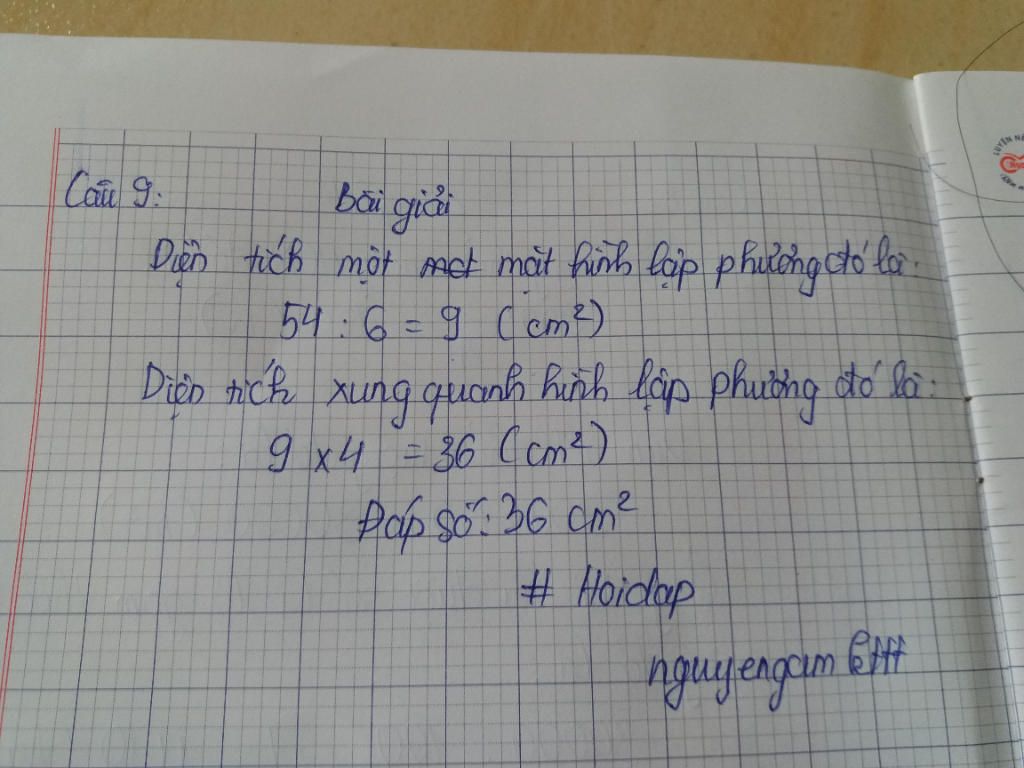 Câu 9: Bài giải
Diện tích một mặt hình lập phương đó là:
54 : 6 = 9 (cm²)
Diện tích xung quanh hình lập phương đó là:
9 x 4 = 36 (cm²)
Đáp số: 36 cm²
# Hoidap
LUYỆN